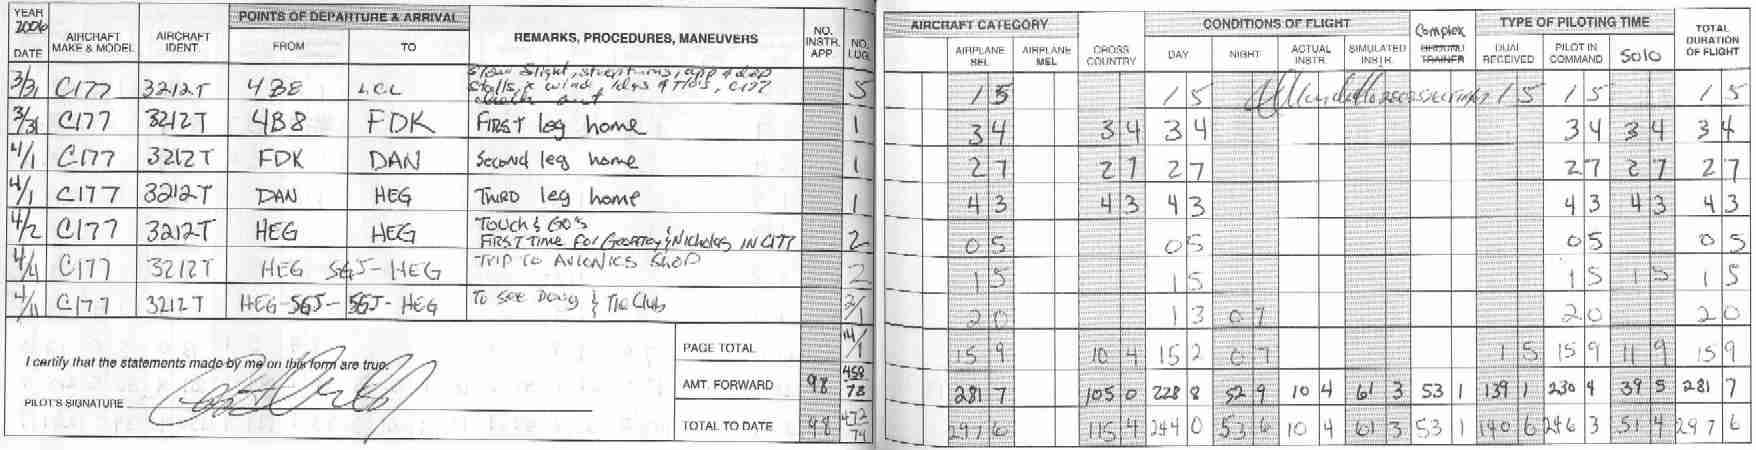 YEAR 2006 DATE
AIRCRAFT MAKE & MODEL
AIRCRAFT IDENT.
POINTS OF DEPARTURE & ARRIVAL
FROM TO
REMARKS, PROCEDURES, MANEUVERS
NO. INSTR. APP.
NO. LDG.
AIRCRAFT CATEGORY
AIRPLANE SEL
AIRPLANE MEL
CROSS COUNTRY
CONDITIONS OF FLIGHT
DAY NIGHT ACTUAL INSTR. SIMULATED INSTR.
Complex
TRAINER
TYPE OF PILOTING TIME
DUAL RECEIVED PILOT IN COMMAND Solo
TOTAL DURATION OF FLIGHT
3/31 C177 3212T LCL stalls, x wind, C177 5 1 5 1 5 1 5 1 5 1 5
check out
3/31 C177 3212T 4B8 FDK FIRST leg home 1 3 4 3 4 3 4 3 4 3 4 3 4
4/1 C177 3212T FDK DAN Second leg home 1 2 7 2 7 2 7 2 7 2 7 2 7
4/1 C177 3212T DAN HEG THIRD leg home 1 4 3 4 3 4 3 4 3 4 3 4 3
4/2 C177 3212T HEG HEG Touch & Go's
FIRST Time For Geoffrey & Nicholas IN C177 2 0 5 0 5 0 5 0 5
C177 3212T HEG SGJ - HEG TRIP TO AVIONICS SHOP 2 1 5 1 5 1 5 1 5 1 5
4/11 C177 3212T HEG-SGJ- SGJ- HEG To See Doug & The Club 3/1 2 0 1 3 0 7 2 0 2 0
I certify that the statements made by me on this form are true.
PILOT'S SIGNATURE
PAGE TOTAL 14/1 15 9 10 4 15 2 0 7 1 5 15 9 11 9 15 9
AMT. FORWARD 98 458/73 281 7 105 0 228 8 52 9 10 4 61 3 53 1 139 1 230 4 39 5 281 7
TOTAL TO DATE 98 472/74 297 6 115 4 244 0 53 6 10 4 61 3 53 1 140 6 246 3 51 4 297 6